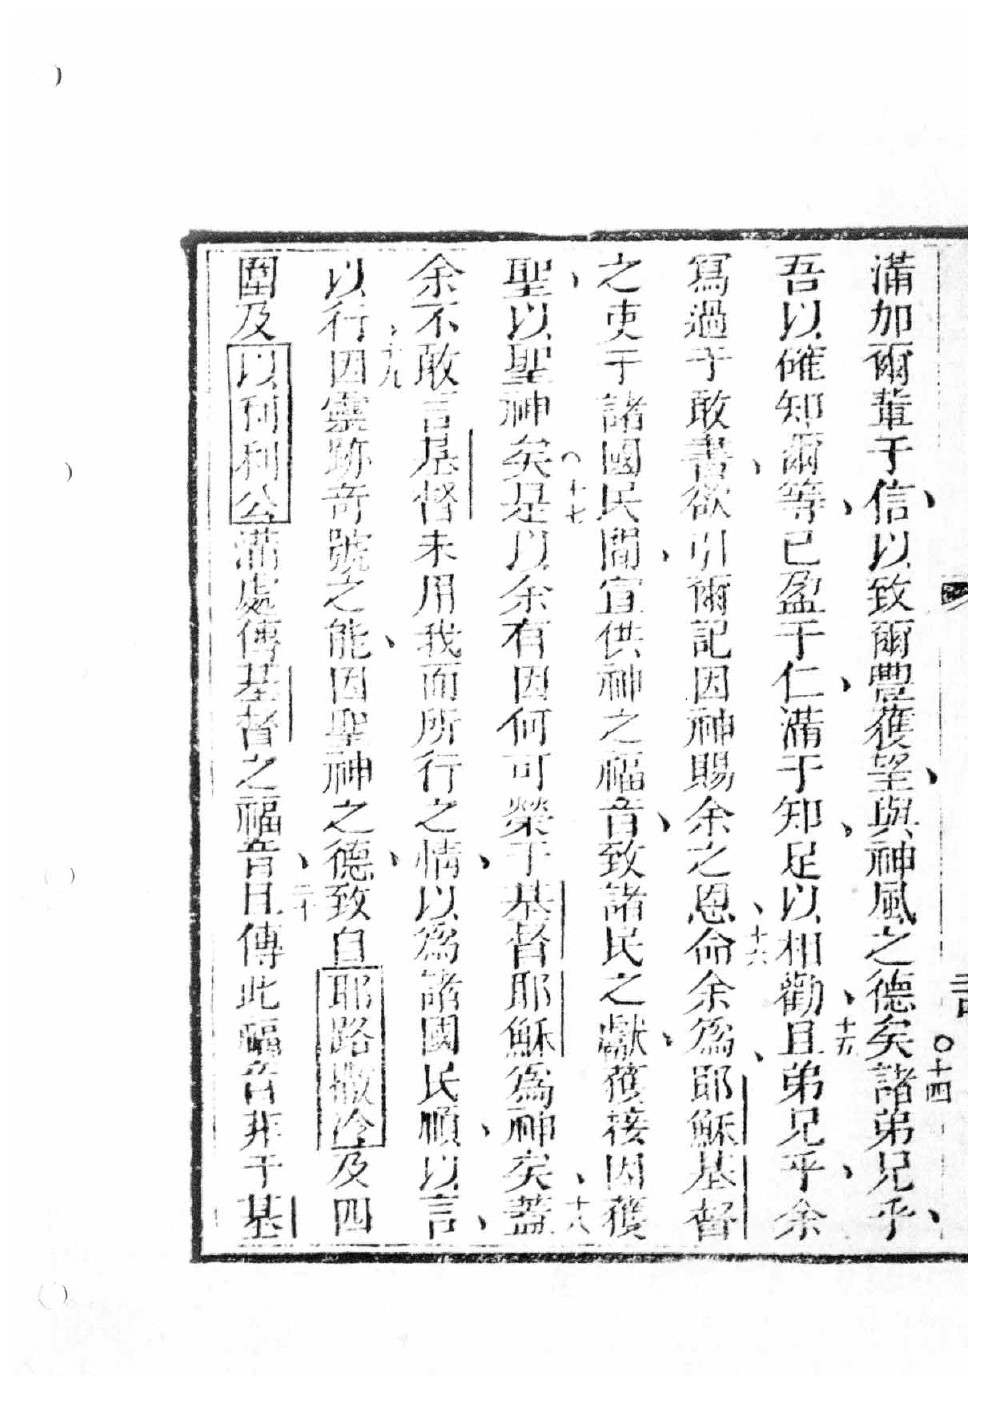 滿加爾輩于信、以致爾豐獲望、與神風之德矣。十四諸弟兄乎、
吾以確知爾等、已盈于仁、滿于知、足以相勸、十五且弟兄乎、余
寫過于敢書、欲引爾記因神賜余之恩、十六命余爲、耶穌基督
之吏于諸國民間、宜供神之福音、致諸民之獻、獲接因獲
聖、以聖神矣。十七是以余有因何可榮于基督耶穌爲神矣、十八蓋
余不敢言基督未用我而所行之情、以爲諸國民順、以言、
以行、十九因靈跡奇號之能、因聖神之德、致自耶路撒冷及四
圍及以利利公滿處傳基督之福音、二十且傳此福音非于基